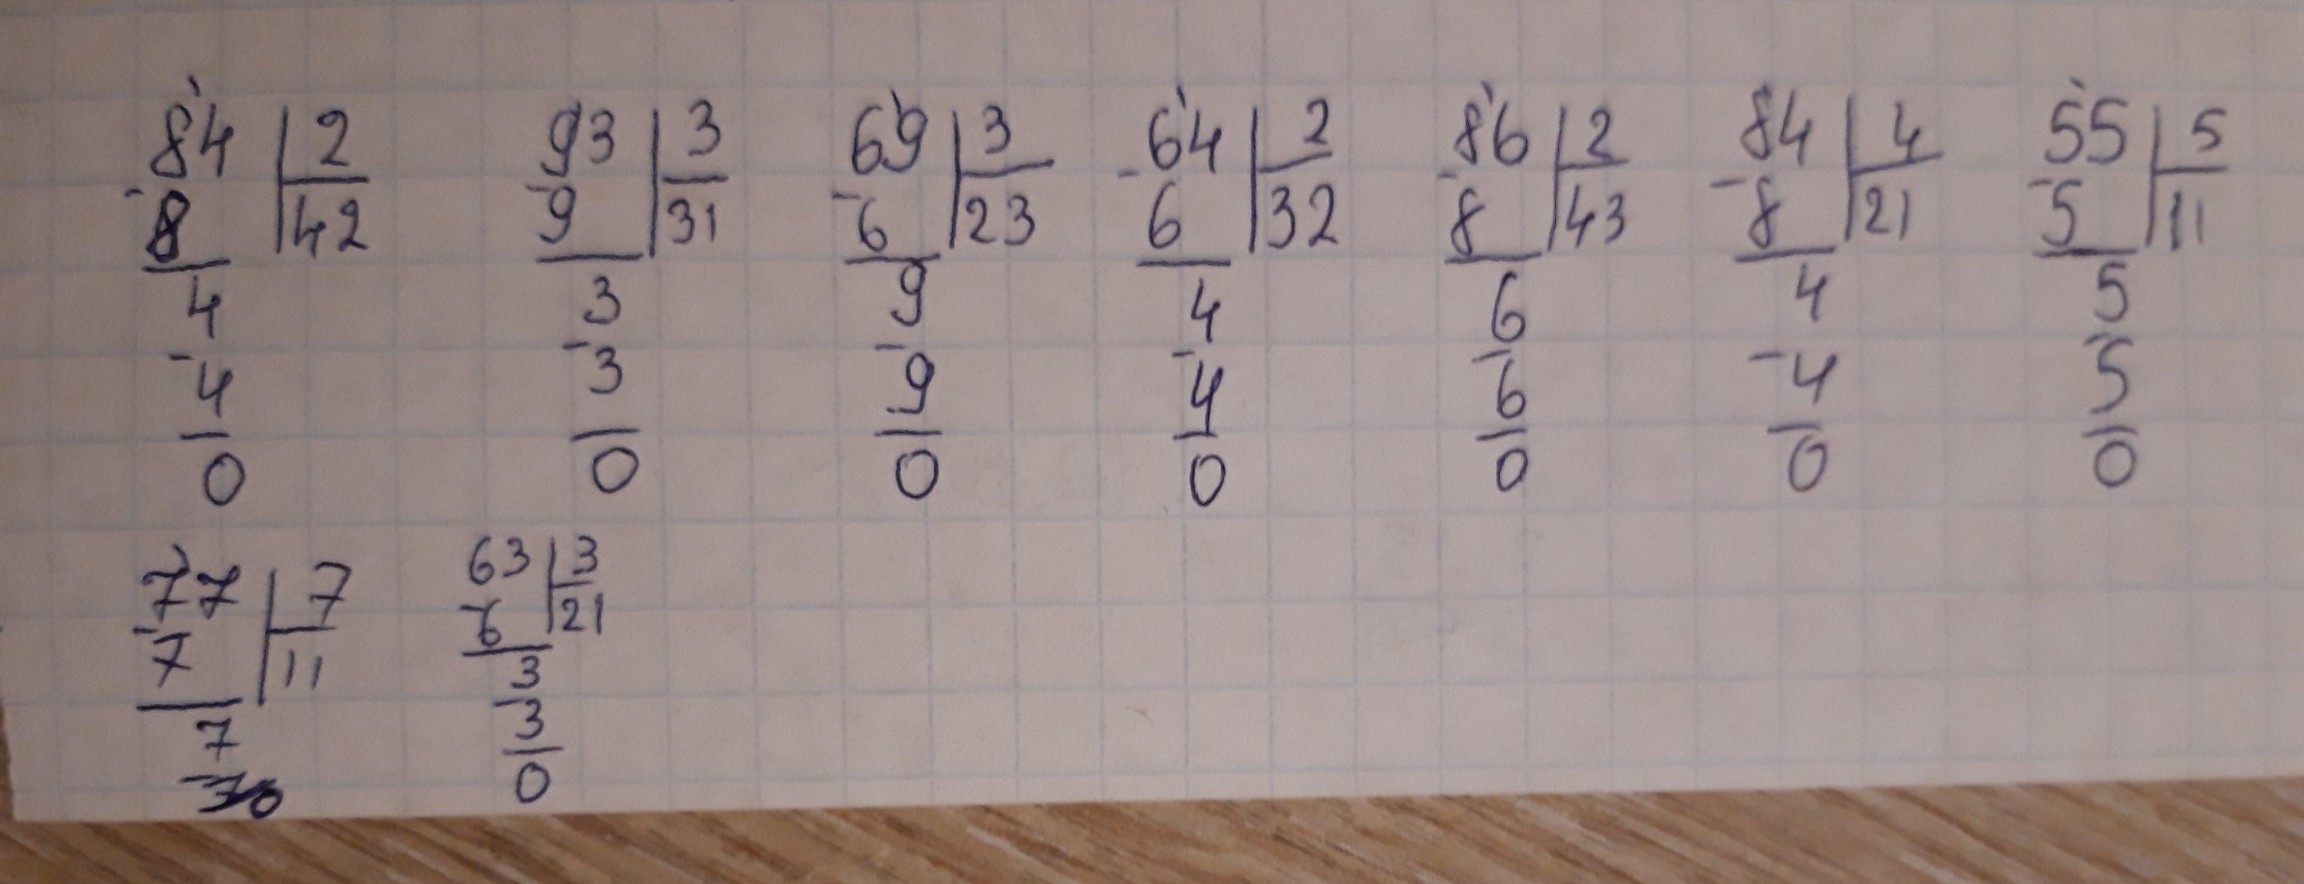 84 2 93 3 69 3 64 2 86 2 84 4 55 5
-8 42 -9 31 -6 23 -6 32 -8 43 -8 21 -5 11
4 3 9 4 6 4 5
-4 -3 -9 -4 -6 -4 -5
0 0 0 0 0 0 0
77 7 63 3
-7 11 -6 21
7 3
-7 -3
0 0